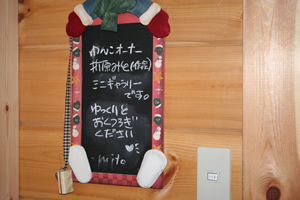 わんこオーナー
折原みと(作家)
ミニギャラリー
です。
ゆっくりと
おくつろぎ
ください
mito